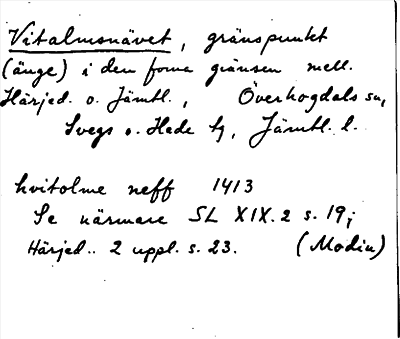 Vitalmsnävet, gränspunkt
(änge) i den forna gränsen mell.
Härjed. o. Jämtl., Överhogdals sn,
Svegs o. Hede tg, Jämtl. l.
hvitolme neff 1413
Se närmare SL XIX. 2 s. 19;
Härjed.. 2 uppl. s. 23. (Modin)